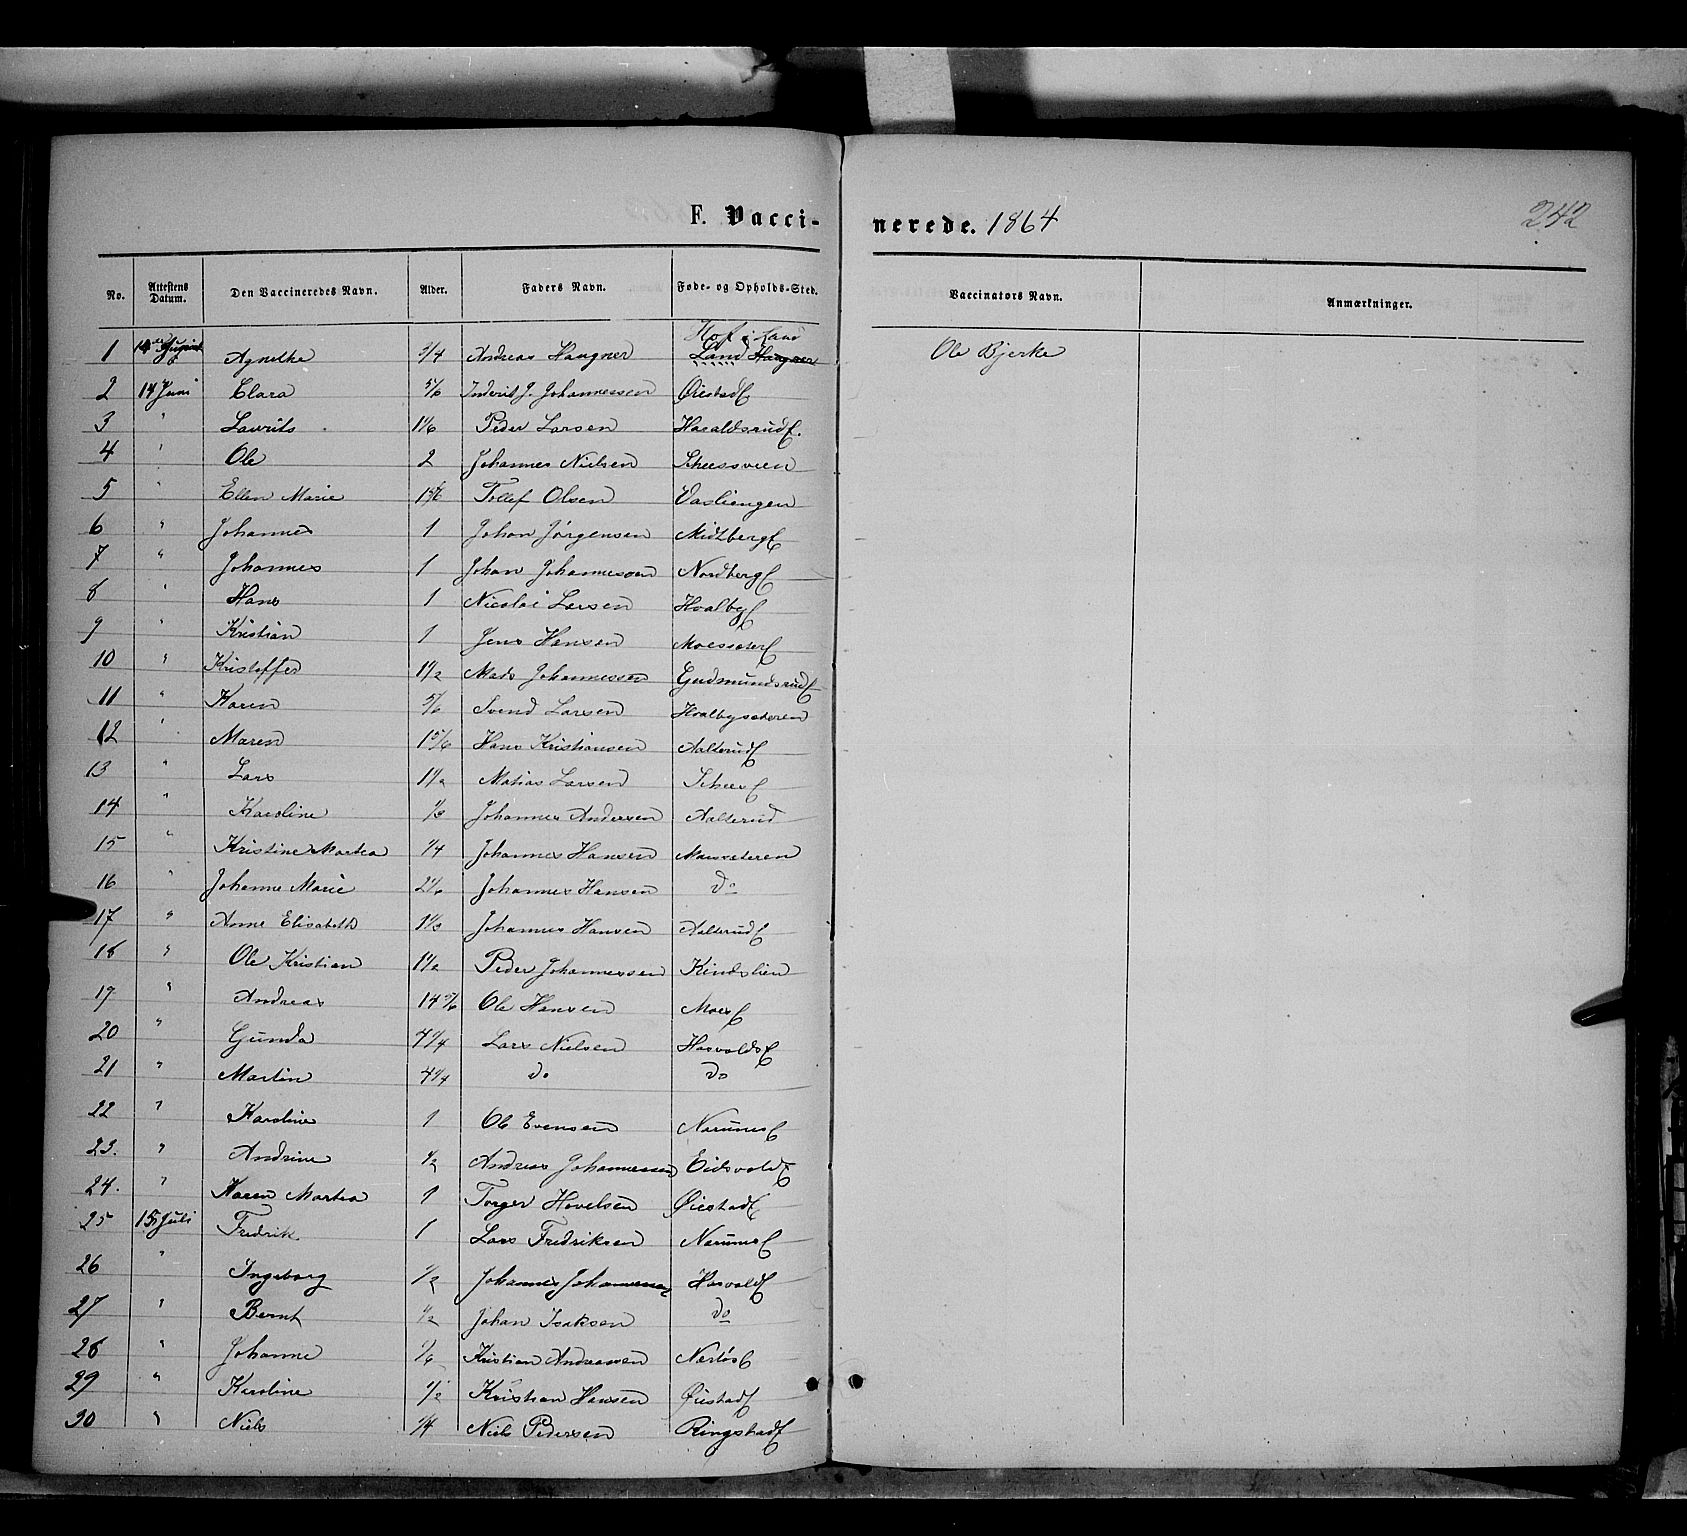 F. Vaccinerede. 1864
242
No. Attestens Datum. Den Vaccineredes Navn. Alder. Faders Navn. Føde- og Opholds-Sted. Vaccinators Navn. Anmærkninger.
Hof i Land
1 Agnethe 3/4 Andreas Haugner Land Haugner Ole Bjerke
2 14 Juni Clara 5/6 Johannessen Øiestad
3 " Laurits 1 1/6 Peder Larsen Haraldsrud
4 " Ole 2 Johannes Nielsen
5 " Ellen Marie Tollef Olsen Vasliengen
6 " Johannes 1 Johan Jørgensen Midtberg
7 " Johannes 1 Johan Johannessen Nordberg
8 " Hans 1 Nicolai Larsen Hvalby
9 " Kristian 1 Jens Hansen Moessæter
10 " Kristoffer 1 1/2 Mads Johannessen Gudmundsrud
11 " Karen 5/6 Svend Larsen Hvalbysæteren
12 " Maren 1 5/6 Hans Kristiansen Aalterud
13 " Lars 1 1/2 Matias Larsen
14 " Karoline 1/3 Johannes Andersen Aalterud
15 " Kristine Martea 1/4 Johannes Hansen Moessæteren
16 " Johanne Marie 2 1/6 Johannes Hansen do
17 " Anne Elisabeth 1 1/3 Johannes Hansen Aalterud
18 " Ole Kristian 1 1/2 Peder Johannessen Kindslien
19 " Andreas 14 5/6 Ole Hansen Moes
20 " Gunda 4 1/4 Lars Nielsen Hasvolds
21 " Martin 4 1/4 do do
22 " Karoline 1 Ole Evensen Narumes
23. " Andrine 1/2 Andreas Johannessen Eidsvold
24. " Karen Martea 1 Torger Hovelsen Øiestad
25 15 Juli Fredrik 1 Lars Fredriksen Narumes
26 " Ingeborg 1/2 Johannes Johannessen Hasvold
27 " Bernt 1/2 Johan Isaksen do
28 " Johanne 1/6 Kristian Andreassen
29 " Karoline 1/2 Kristian Hansen Øiestad
30 " Niels 1/4 Niels Pedersen Ringstad